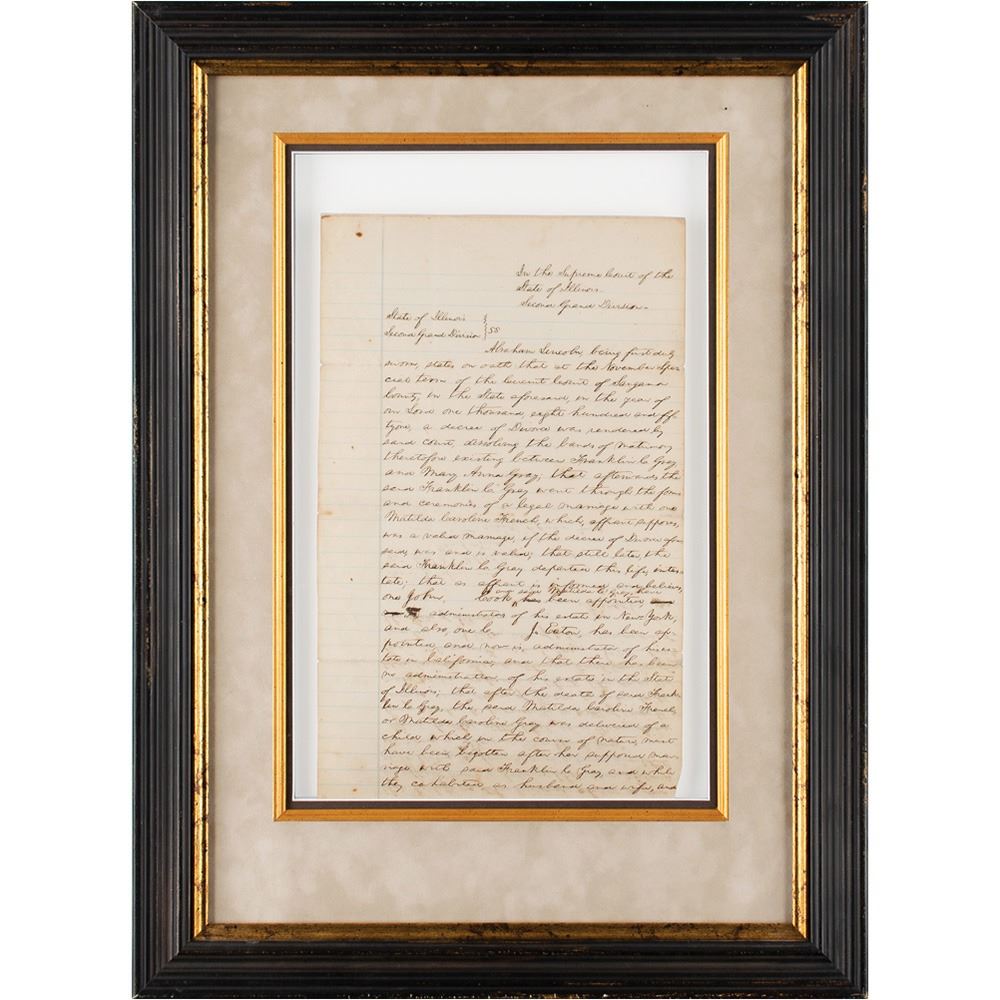 In the Supreme Court of the
State of Illinois.
Second Grand Division.
State of Illinois
Second Grand Division } SS
Abraham Lincoln, being first duly
sworn, states on oath that at the November Spe-
cial term of the Circuit Court of Sangamon
County, in the State aforesaid, in the year of
our Lord one thousand eight hundred and fif-
tyone, a decree of Divorce was rendered by
said court, dissolving the bands of matrimony
theretofore existing between Franklin C. Gray,
and Mary Anna Gray; that afterwards the
said Franklin C. Gray went through the form
and ceremonies of a legal marriage with one
Matilda Caroline French, which, affiant supposes,
was a valid marriage, if the decree of Divorce afore-
said, was and is valid; that still later, the
said Franklin C. Gray departed this life, intes-
tate; that as affiant is informed and believes,
and said Matilda C. Gray, have
one John Cook, been appointed
administrators of his estate in New-York,
and also, one C. J. Eaton, has been ap-
pointed, and now is, administrator of his es-
tate in California, and that there has been
no administration of his estate in the State
of Illinois; that after the death of said Frank-
lin C. Gray, the said Matilda Caroline French,
or Matilda Caroline Gray was delivered of a
child which in the course of nature, must
have been begotten after her supposed mar-
riage with said Franklin C. Gray, and while
they cohabited as husband and wife, and